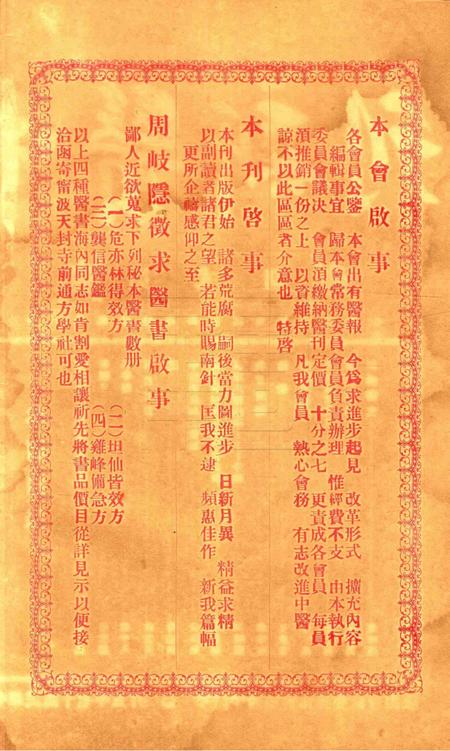 本會啟事
各會員公鑒　本會出有醫報　今爲求進步起見　改革形式　擴充內容
編輯事宜　歸本會常務委員會員負責辦理　惟經費不支　由本執行
委員會議決　會員須繳納醫刊定價　十分之七　更責成各會員　每員
須推銷一份之上　以資維持　凡我會員　熱心會務　有志改進中醫
諒不以此區區者介意也　特啓
本刊啓事
本刊出版伊始　諸多荒腐　嗣後當力圖進步　日新月異　精益求精
以副讀者諸君之望　若能時賜南針　匡我不逮　頻惠佳作　新我篇幅
更所企禱感仰之至
周岐隱徵求醫書啟事
鄙人近欲蒐求下列秘本醫書數册
(一)危亦林得效方　(二)坦仙皆效方
(三)龔信醫鑑　(四)雞峰備急方
以上四種醫書海內同志如肯割愛相讓祈先將書品價目從詳見示以便接
洽函寄甯波天封寺前通方學社可也